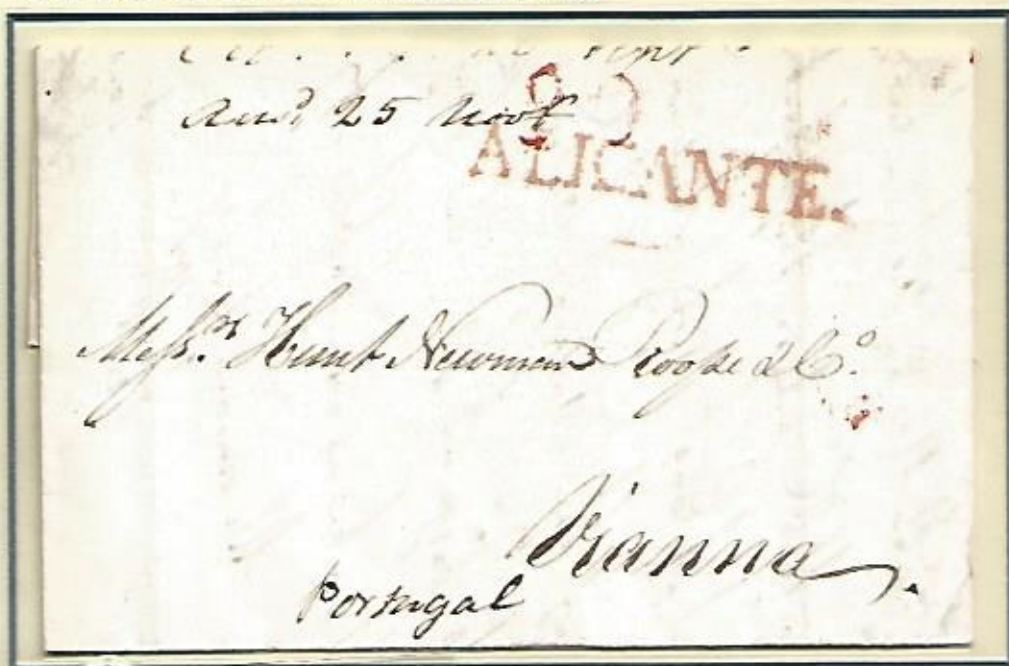 ansd 25 Novr
ALICANTE.
Messrs Hunt Newman Roope & Co.
Vianna.
Portugal